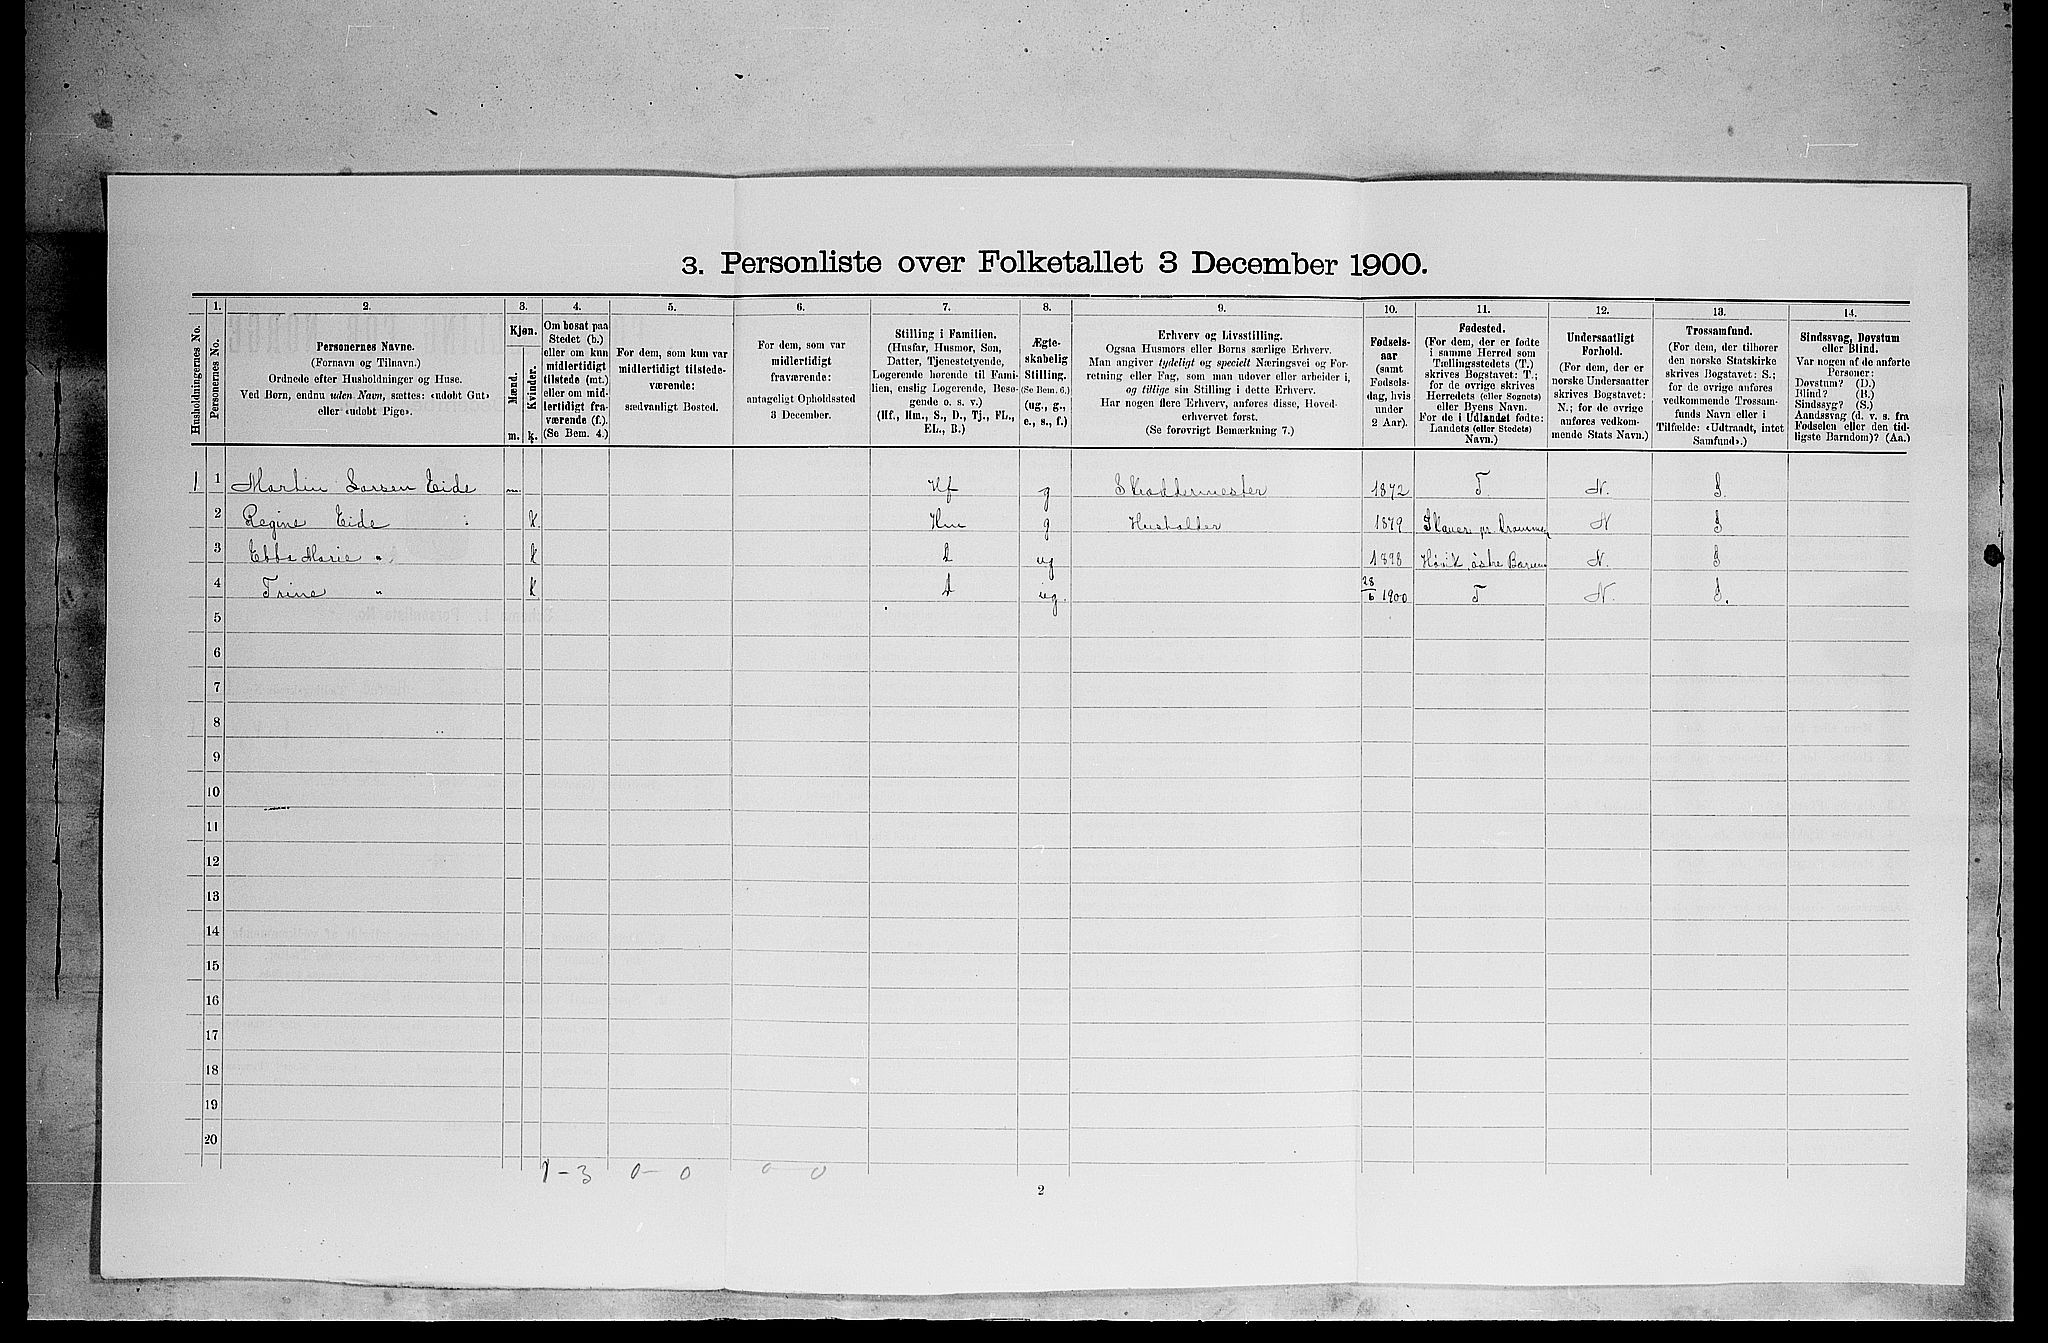 3. Personliste over Folketallet 3 December 1900.
Husholdningernes No.
1.
Personernes No.
2.
Personernes Navne.
(Fornavn og Tilnavn.)
Ordnede efter Husholdninger og Huse.
Ved Børn, endnu uden Navn, sættes: «udøbt Gut»
eller «udøbt Pige».
3.
Kjøn.
Mænd.
Kvinder.
m.
k.
4.
Om bosat paa
Stedet (b.)
eller om kun
midlertidigt
tilstede (mt.)
eller om mid-
lertidigt fra-
værende (f.).
(Se Bem. 4.)
5.
For dem, som kun var
midlertidigt tilstede-
værende:
sædvanligt Bosted.
6.
For dem, som var
midlertidigt
fraværende:
antageligt Opholdssted
3 December.
7.
Stilling i Familien.
(Husfar, Husmor, Søn,
Datter, Tjenestetyende,
Logerende hørende til Fami-
lien, enslig Logerende, Besø-
gende o. s. v.)
(Hf., Hm., S., D., Tj., FL.,
EL., B.)
8.
Ægte-
skabelig
Stilling.
(Se Bem. 6.)
(ug., g.,
e., s., f.)
9.
Erhverv og Livsstilling.
Ogsaa Husmors eller Børns særlige Erhverv.
Man angiver tydeligt og specielt Næringsvei og For-
retning eller Fag, som man udøver eller arbeider i,
og tillige sin Stilling i dette Erhverv.
Har nogen flere Erhverv, anføres disse, Hoved-
erhvervet først.
(Se forøvrigt Bemærkning 7.)
10.
Fødsels-
aar
(samt
Fødsels-
dag, hvis
under
2 Aar).
11.
Fødested.
(For dem, der er fødte
i samme Herred som
Tællingsstedets (T.)
skrives Bogstavet: T.;
for de øvrige skrives
Herredets (eller Sognets)
eller Byens Navn.
For de i Udlandet fødte:
Landets (eller Stedets)
Navn.)
12.
Undersaatligt
Forhold.
(For dem, der er
norske Undersaatter
skrives Bogstavet:
N.; for de øvrige
anføres vedkom-
mende Stats Navn.)
13.
Trossamfund.
(For dem, der tilhører
den norske Statskirke
skrives Bogstavet: S.;
for de øvrige anføres
vedkommende Trossam-
funds Navn eller i
Tilfælde: «Udtraadt, intet
Samfund».)
14.
Sindssvag, Døvstum
eller Blind.
Var nogen af de anførte
Personer:
Døvstum? (D.)
Blind? (B.)
Sindssyg? (S.)
Aandssvag (d. v. s. fra
Fødselen eller den tid-
ligste Barndom)? (Aa.)
1 1 Martin Larsen Eide m. Hf g Skræddermester 1872 T. N. S.
2 Regine Eide k Hm g Husholder 1879 pr Drammen N S
3 Ebba Marie " k d ug 1898 Høvik, østre Bærum N. S
4 Trine " k d ug. 28/6 1900 T N. S.
5
6
7
8
9
10
11
12
13
14
15
16
17
18
19
20
1 - 3 0 - 0 0 - 0
2